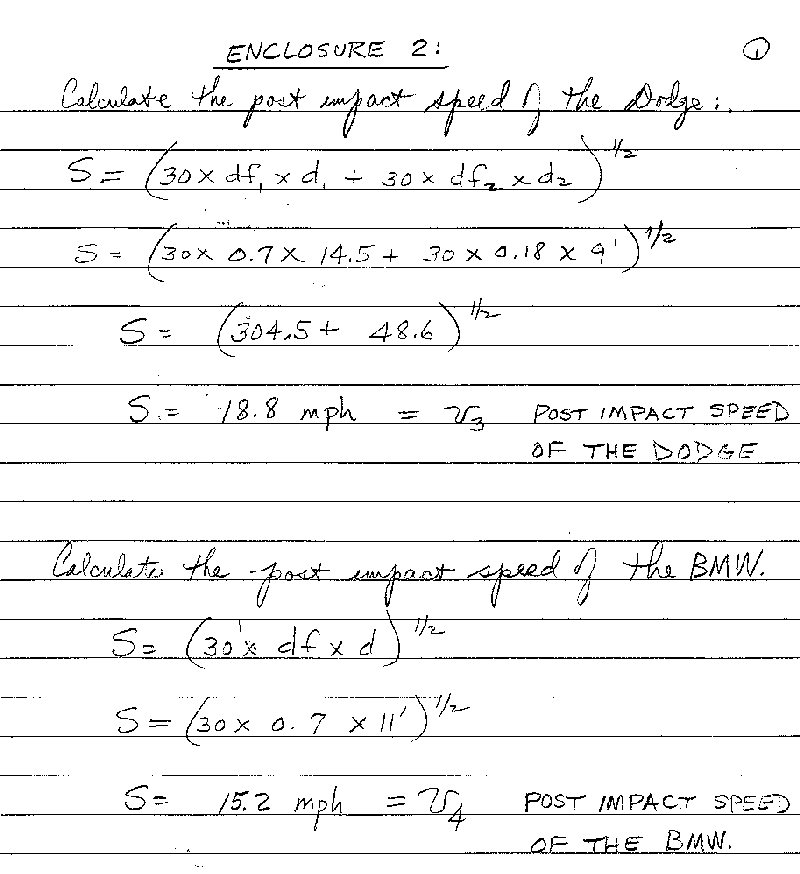 ENCLOSURE 2: ①
Calculate the post impact speed of the Dodge:
S = (30 x df₁ x d₁ + 30 x df₂ x d₂)^1/2
S = (30x 0.7 x 14.5 + 30 x 0.18 x 9')^1/2
S = (304.5 + 48.6)^1/2
S = 18.8 mph = V₃ POST IMPACT SPEED
OF THE DODGE
Calculate the post impact speed of the BMW.
S = (30 x df x d)^1/2
S = (30 x 0.7 x 11')^1/2
S = 15.2 mph = V₄ POST IMPACT SPEED
OF THE BMW.